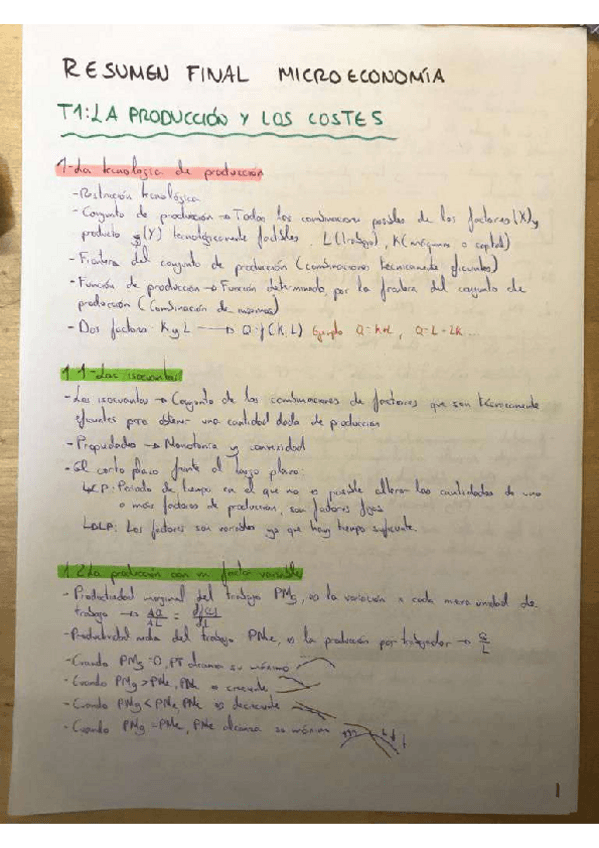 RESUMEN FINAL MICROECONOMÍA
T1: LA PRODUCCIÓN Y LOS COSTES
1-La tecnología de producción
-Restricción tecnológica
-Conjunto de producción → Todas las combinaciones posibles de los factores (X) y
producto (Y) tecnológicamente factibles. L (trabajo), K (máquinas o capital)
-Frontera del conjunto de producción (combinaciones técnicamente eficientes)
-Función de producción → Función determinada por la frontera del conjunto de
producción (Combinación de
-Dos factores: K y L → Q=f(K,L) Ejemplo Q=K+L, Q=L-2K...
1.1-Las isocuantas
-Las isocuantas → Conjunto de las combinaciones de factores que son técnicamente
eficientes para obtener una cantidad dada de producción
-Propiedades → Monotonía y convexidad
-El corto plazo frente al largo plazo:
CP: Periodo de tiempo en el que no es posible alterar las cantidades de uno
o más factores de producción, son factores fijos
LP: Los factores son variables ya que hay tiempo suficiente.
1.2 La producción con un factor variable
-Productividad marginal del trabajo PMg, es la variación x cada nueva unidad de
trabajo → ΔQ/ΔL =
-Productividad media del trabajo PMe, es la producción por trabajador → Q/L
-Cuando PMg=0, PT alcanza su máximo
-Cuando PMg>PMe, PMe es creciente
-Cuando PMg<PMe, PMe es decreciente
-Cuando PMg=PMe, PMe alcanza su máximo
1